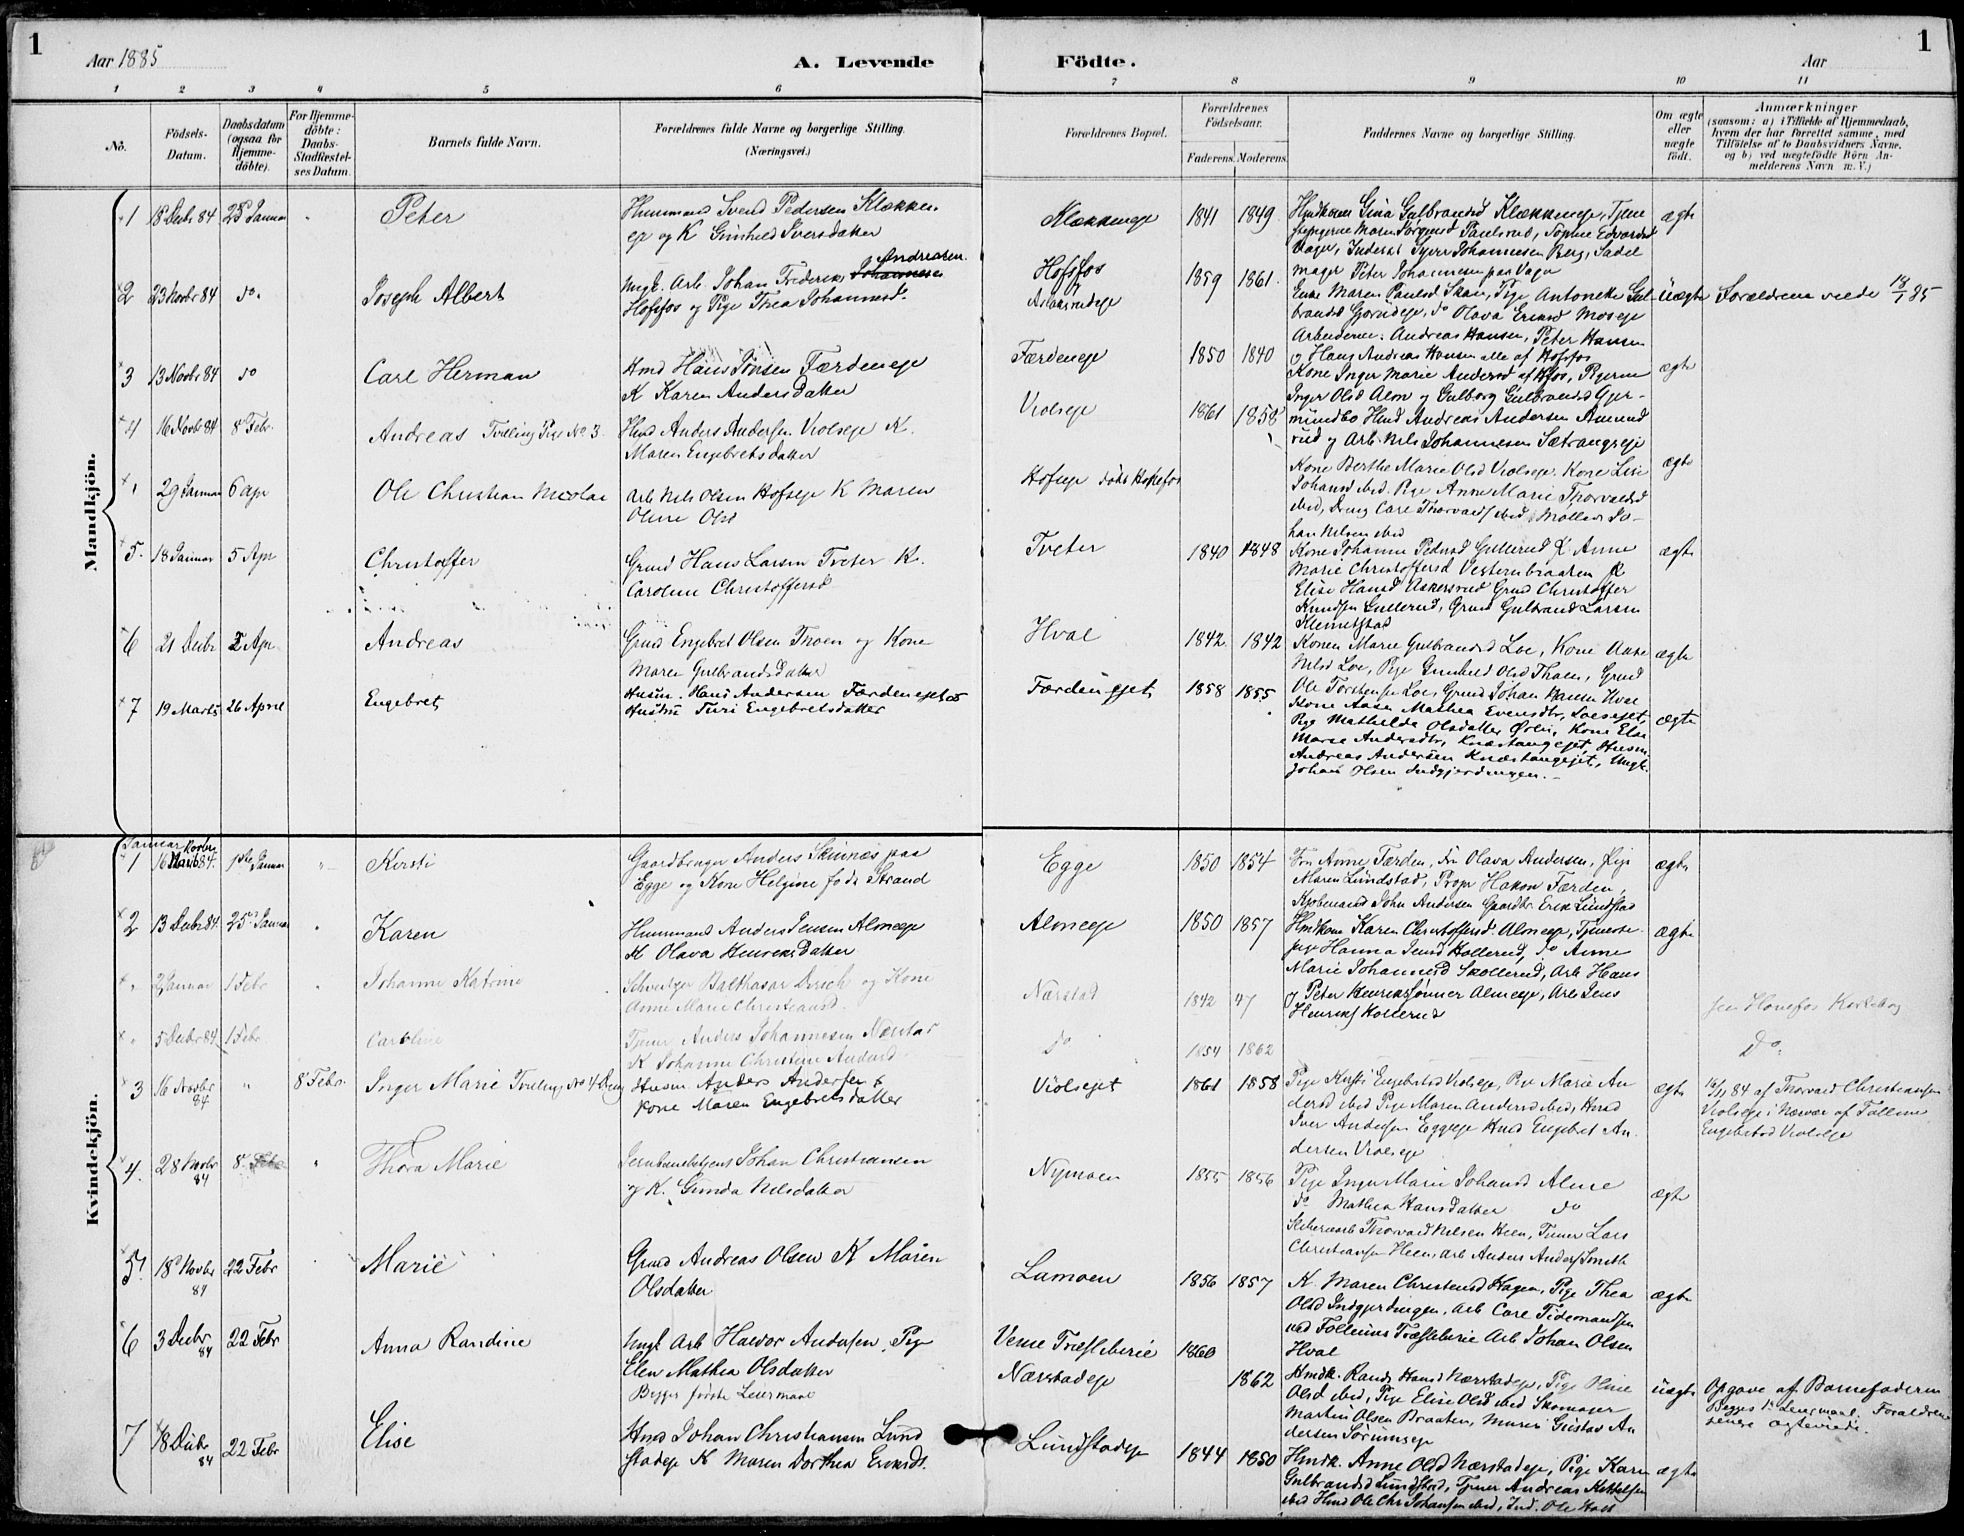 1
Aar 1885
A. Levende
Födte.
Aar
1
1 2 3 4 5 6 7 8 9 10 11
No.
Födsels-
Datum.
Daabsdatum
(ogsaa for
Hjemme-
döbte).
For Hjemme-
döbte:
Daabs-
Stadfæstel-
ses Datum.
Barnets fulde Navn.
Forældrenes fulde Navne og borgerlige Stilling.
(Næringsvei.)
Forældrenes Bopæl.
Forældrenes
Födselsaar.
Faderens. Moderens.
Faddernes Navne og borgerlige Stilling.
Om ægte
eller
uægte
födt.
Anmærkninger
(saasom: a) i Tilfælde af Hjemmedaab,
hvem der har forrettet samme, med
Tilföielse af to Daabsvidners Navne,
og b) ved uægtefödte Börn An-
melderens Navn m. V.)
Mandkjön.
1 18 Decbr 84 25 Januar Peter
Huusmand Svend Pedersen Klækken-
eje og K Gunhild Iversdatter
Klækkeneje 1841 1849
Hmdkone Gina Gulbrandsd Klækkeneje, Tjene
Hager, Inderst Syver Johannesen Berg, Sadel
mager Peter Johannesen paa Vager
ægte
2 23 Novbr 84 do. Joseph Albert
Ungk. Arb. Johan Frederik Andreasen
Hofsfos og Pige Thea Johannesd.
Hofsfos
1859 1861
Enke Maren Paulsd Skau, Pige Antonette Gul-
brandsd Gjorudeje, do Olava Eriksd Moseje
Arbeiderne: Andreas Hansen, Peter Hansen
og Hans Andreas Hansen alle af Hofsfos
uægte Forældrene viede 18/1 85
3 13 Novbr 84 do Carl Herman
Hmd Hans Jonsen Færdeneje
K Karen Andersdatter
Færdeneje 1850 1840
Kone Inger Marie Andersd af Hfos, Pigerne
Inger Olsd Alm og Gulborg Gulbrandsd Gjer-
mundbo Hmd Andreas Andersen Aamund
rud og Arb. Nils Johannesen Sætrangseje
ægte
4 16 Novbr 84 8 Febr. Andreas Tvilling Pige No 3.
Hmd Anders Andersen Violseje K.
Maren Engebretsdatter
Violseje 1861 1858
Kone Berthe Marie Olsd Violseje. Kone Lise
Johansd ibid. Pige Anne Marie Thorvaldsd
ibid, Dreng Carl Thorvalds ibid, Møller Jo-
han Nilsen ibid
ægte
29 Januar 6 Apr Ole Christian Nicolai
Arb Nils Olsen Hofseje K Maren
Oline Olsd
Hofseje
5. 18 Januar 5 Apr Christoffer
Grmd Hans Larsen Tveter K.
Caroline Christoffersd
Tveter 1840 1848
Kone Johanne Pedersd Gullerud K. Anne
Marie Christoffersd Vesternbraaten K
Elise Hansd Askersrud Grmd Christoffer
Knudsen Gullerud, Grmd Gulbrand Larsen
Klemetstad
ægte
6 21 Decbr 5 Apr Andreas
Grmd Engebret Olsen Thoen og Kone
Maren Gulbrandsdatter
Hval 1842 1842
Konen Marie Gulbrandsd Loe, Kone Aase
Nilsd Loe, Pige Gunhild Olsd Thoen, Grmd
Ole Torstensen Loe, Grmd Johan Hansen Hval
ægte
7 19 Marts 26 April Engebret
Husm. Hans Andersen Færdenejet &
Hustru Turi Engebretsdatter
Færdenejet 1858 1855
Kone Aase Mathea Evensdtr, Loesejet,
Pige Mathilde Olsdatter Ørlin, Kone Else
Marie Andersdtr, Knæstangejet, Husm.
Andreas Andersen Knæstangejet, Ungk.
Johan Olsen Indgjerdingen.
ægte
Kvindekjön.
Januar
1 16 Novbr 84. 1ste Januar Kirsti
Gaardbruger Anders Skinnæs paa
Egge og Kone Helgine født Strand
Egge 1850 1854
Fru Anne Færden, Fru Olava Andersen, Pige
Maren Lundstad, Propr Hakon Færden,
Kjøbmand John Andersen Gaardbr. Erik Lundstad
ægte
2 13 Decbr 84. 25 Januar Karen
Huusmand Anders Jensen Almeje
K Olava Henriksdatter
Almeje 1850 1857
Hmdkone Karen Christoffersd Almeje, Tjeneste-
pige Hanna Jensd Hollerud, do Anne
Marie Johannesd Skollerud, Arb Hans
og Peter Henriksønner Almeje, Arb Jens
Henriks Hollerud
ægte
2 Januar 1 Febr Johanne Katrine
Schweitzer Balthasar Dersch og Kone
Anne Marie Christiansd.
Nærstad 1842 47
sen Hønefos Kirkebog
5 Decbr 84 1 Febr. Caroline
Tjener Anders Johannesen Nærstad
K Johanne Christine Andersd
Do 1854 1862
Do.
3 16 Novbr 84 8 Febr. Inger Marie Tvilling No 4 Dreng
Husm. Anders Andersen &
Kone Maren Engebretsdatter
Violsejet 1861 1858
Pige Kirsti Engebretsd Violseje, Pige Marie An
dersd ibid Pige Maren Andersd ibid, Hmd
Iver Andersen Eggeje Hmd Engebret An-
dersen Violseje
ægte 16/11 84 af Thorvald Christiansen
Violseje i Nærvær af Talline
Engebretsd Violseje
4. 28 Novbr 84 8 Febr Thora Marie
Jernbanebetjent Johan Christiansen
og K. Gunda Nilsdatter
Nymoen 1855 1856
Pige Inger Marie Johansd Alme
do Mathea Hansdatter do
Sliberiarb Thorvald Nilsen Heen, Tjener Lars
Christiansen Heen, Arb Anders Anders Smith
ægte
5. 18 Novbr 84 22 Febr Marie
Grmd Andreas Olsen K Maren
Olsdatter
Lamoen 1856 1857
K. Maren Christensd Hagen, Pige Thea
Olsd Indgjerdingen, Arb Carl Tidemandsen
ved Follums Træsleberie Arb Johan Olsen
Hval
ægte
6 3 Decbr 84 22 Febr Anna Randine
Ungk Arb Halvor Andersen, Pige
Elen Mathea Olsdatter
Begges første Leiermaal
Veme Træsleberie 1860
Nærstadeje 1862
Hmdk. Randi Hansd Nærstadeje, Pige Oline
Olsd ibid, Pige Elise Olsd ibid Skomager
Martin Olsen Braaten, Murer Gustav An
dersen Sørumseje
uægte Opgave af Barnefaderen
Begges 1ste Leiermaal. Forældrene
senere ægteviede.
7 18 Decbr 84 22 Febr Elise
Hmd Johan Christiansen Lund
stadeje K Maren Dorthea Eriksdt.
Lundstadeje 1844 1850
Hmdk. Anne Olsd Nærstadeje, Pige Karen
Gulbrandsd Lundstad, Tjener Andreas Kittelsen
ibid Hmd Ole Chr Johansen ibid, Ind. Ole
ægte